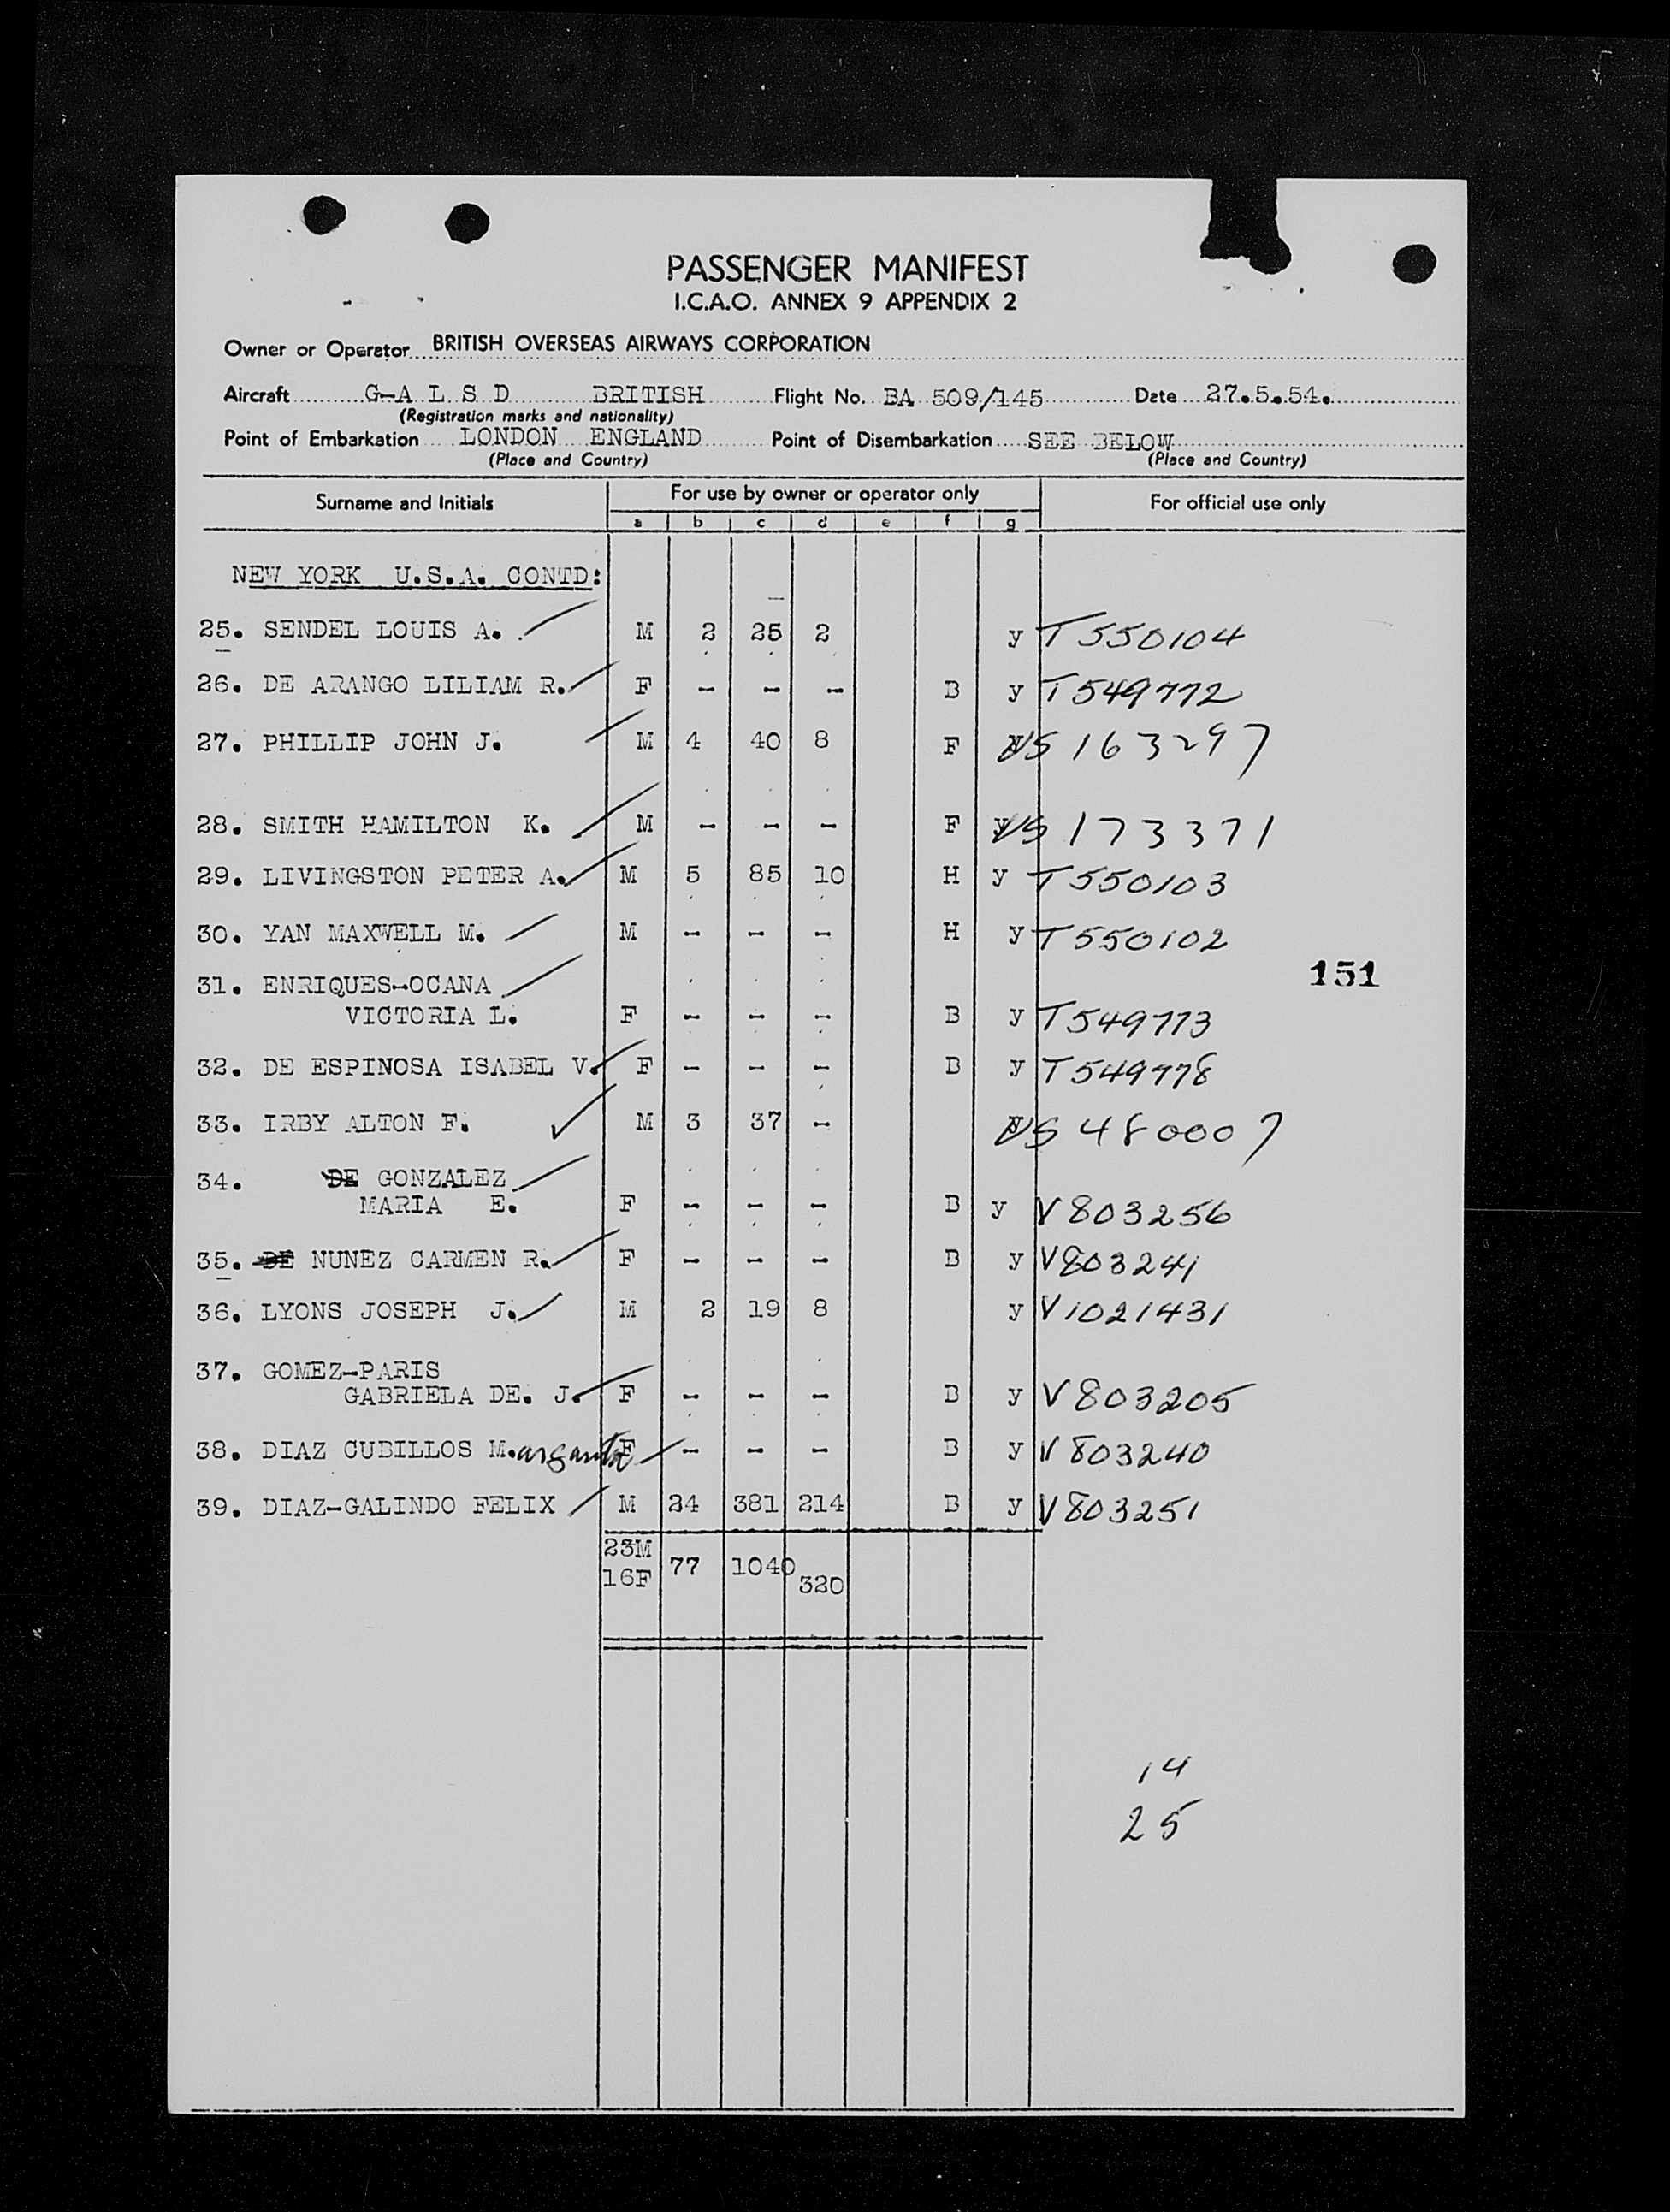 PASSENGER MANIFEST
I.C.A.O. ANNEX 9 APPENDIX 2
Owner or Operator BRITISH OVERSEAS AIRWAYS CORPORATION
Aircraft G-A L S D BRITISH Flight No. BA 509/145 Date 27.5.54.
(Registration marks and nationality)
Point of Embarkation LONDON ENGLAND Point of Disembarkation SEE BELOW
(Place and Country) (Place and Country)
Surname and Initials For use by owner or operator only For official use only
a b c d e f g
NEW YORK U.S.A. CONTD:
25. SENDEL LOUIS A. M 2 25 2 y T550104
26. DE ARANGO LILIAM R. F - - - B y T549772
27. PHILLIP JOHN J. M 4 40 8 F US 163297
28. SMITH HAMILTON K. M - - - F US 173371
29. LIVINGSTON PETER A. M 5 85 10 H y T550103
30. YAN MAXWELL M. M - - - H y T550102
151
31. ENRIQUES-OCANA
VICTORIA L. F - - - B y T549773
32. DE ESPINOSA ISABEL V. F - - - B y T549778
33. IRBY ALTON F. M 3 37 - US 480007
34. DE GONZALEZ
MARIA E. F - - - B y V803256
35. DE NUNEZ CARMEN R. F - - - B y V803241
36. LYONS JOSEPH J. M 2 19 8 y V1021431
37. GOMEZ-PARIS
GABRIELA DE. J. F - - - B y V803205
38. DIAZ CUBILLOS M.argarita F - - - B y V803240
39. DIAZ-GALINDO FELIX M 24 381 214 B y V803251
23M
16F 77 1040 320
14
25